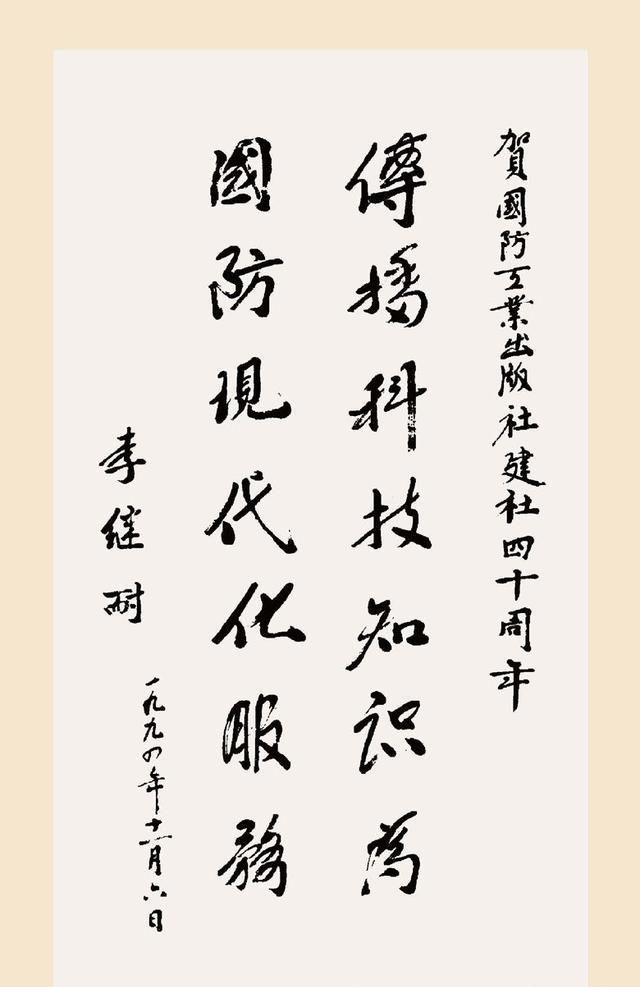 賀國防工業出版社建社四十周年
傳播科技知识為
國防現代化服務
李继耐
一九九四年十一月六日